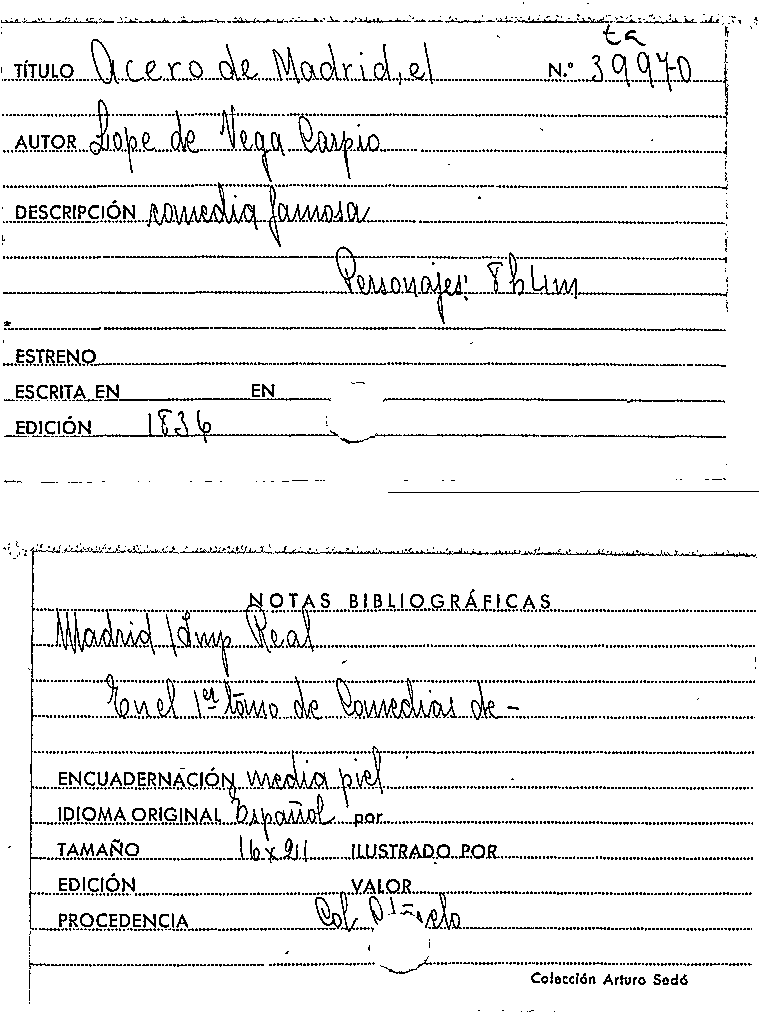 ta
TÍTULO Acero de Madrid, el N.º 39970
AUTOR Lope de Vega Carpio
DESCRIPCIÓN comedia famosa
Personajes: 8h 4m
ESTRENO
ESCRITA EN EN
EDICIÓN 1836
NOTAS BIBLIOGRÁFICAS
Madrid / Imp Real
En el 1er tomo de Comedias de -
ENCUADERNACIÓN media piel
IDIOMA ORIGINAL Español por
TAMAÑO 16 x 211 ILUSTRADO POR
EDICIÓN VALOR
PROCEDENCIA Col
Colección Arturo Sedó